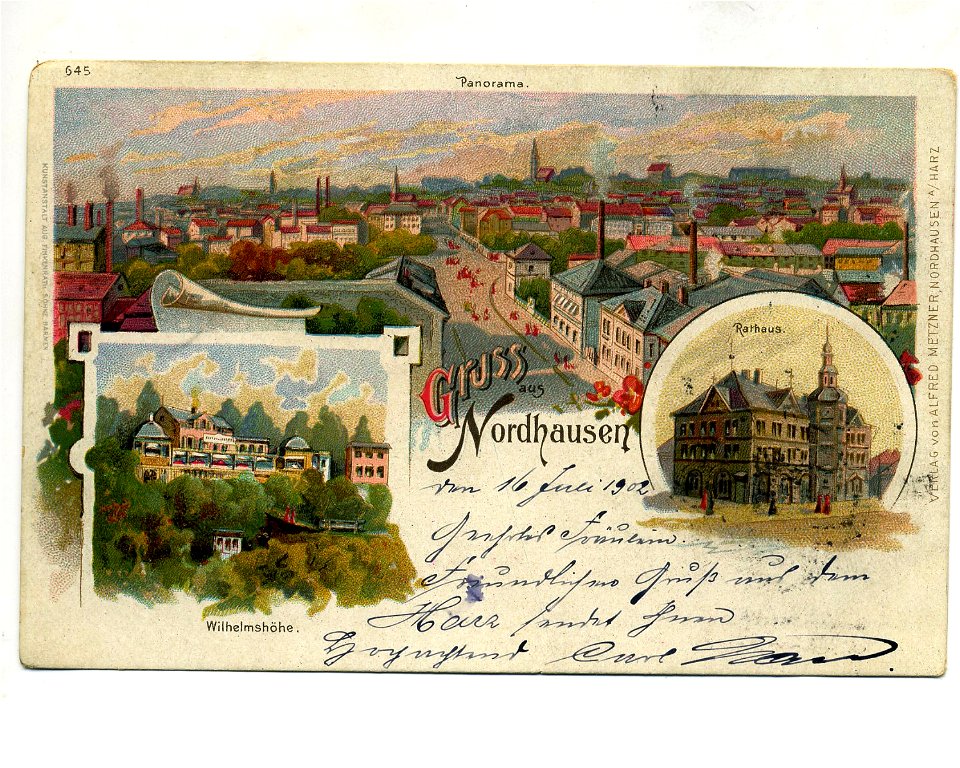 645
Panorama.
KUNSTANSTALT
VERLAG von ALFRED METZNER, NORDHAUSEN A/HARZ
Rathaus.
Gruss
aus
Nordhausen
den 16 Juli 1902
Geehrtes Fräulein.
Freundlichen Gruß aus dem
Harz sendet Ihnen
Hochachtend Carl
Wilhelmshöhe.